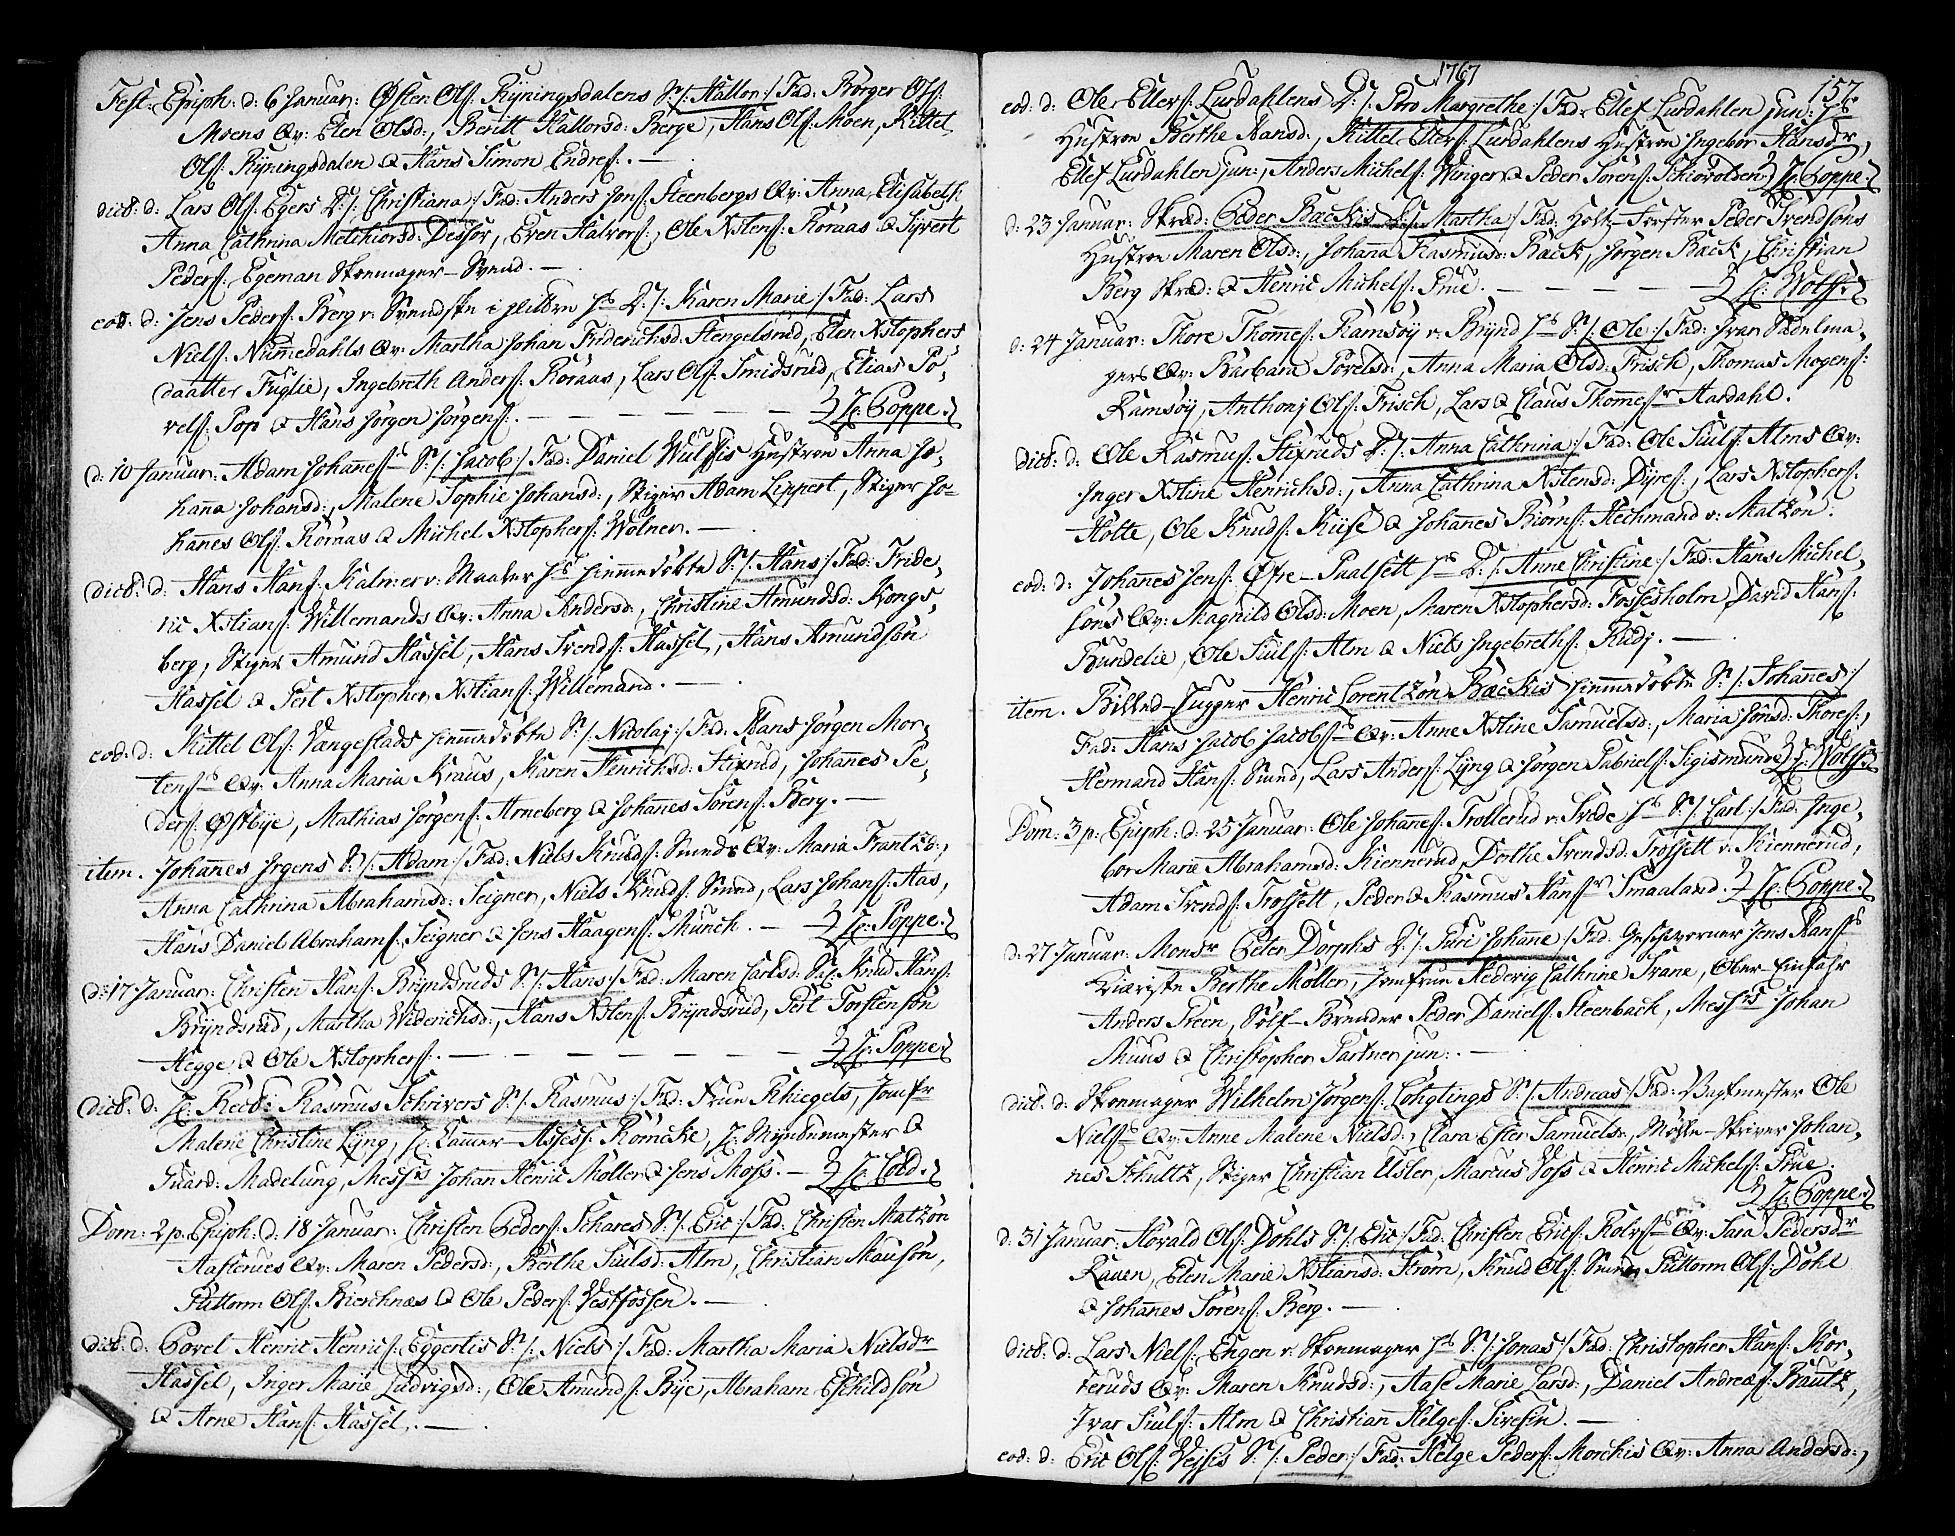 Fest: Epiph: d: 6 Januar: Øster Ols: Ryningsdalens S: /: Hallor :/ Fad: Børger Ols:
Moens Qv: Elen Olsd:, Beritt Hallorsd: Berge, Hans Ols: Moen, Kittel
Ols: Ryningsdalen & Hans Simon Endres:. —
dict: d: Lars Ols: Egers D: /: Christiana :/ Fad: Anders Jons: Steenbergs Qv: Anna Elisabeth
Anna Cathrina Melchiorsd: Dessor, Even Halvors:, Ole Xstens: Røraas & Syvert
Peders: Egeman Skomager-Svend. —
eod: d: Jens Peders: Berg v: Svendske i hytten hs D: /: Karen Marie :/ Fad: Lars
Niels: Nummedahls Qv: Martha Johan Friderichsd: Stengelsrud, Elen Xstophers
daatter Fuglie, Ingebreth Anders: Røraas, Lars Ols: Smidsrud, Elias Po-
vels: Pop & Hans Jørgen Jørgens:. — — — — — Hr: Poppe.
d: 10 Januar: Adam Johannes: S: /: Jacob :/ Fad: Daniel Wulffis Hustroe Anna Jo-
hanna Johansd:, Malene Sophie Johansd:, Stiger Adam Lippert, Stiger Jo-
hannes Ols: Røraas & Michel Xstophers: Wolner. —
dict: d: Hans Hans: Kalmer v: Maaler hs hjemmedøbte S: /: Hans :/ Fad: Fride-
ric Xstians: Willemands Qv: Anna Andersd:, Christine Amundsd: Kongs-
berg, Stiger Amund Hassel, Hans Svends: Hassel, Hans Amundsøn
Hassel & Pert Xstopher Xstians: Willemand. —
eod: d: Kittel Ols: Vængestads hjemmedøbte S: /: Nicolaj :/ Fad: Hans Jørgen Mor-
tens: Qv: Anna Maria Kraus, Karen Henrichsd: Stixrud, Johannes Pe-
ders: Østbye, Mathias Jørgens: Arneberg & Johannes Sørens: Berg. —
item. Johannes Jrgens S: /: Adam :/ Fad: Niels Knuds: Smeds Qv: Maria Frantzd:,
Anna Cathrina Abrahamsd: Seigner, Niels Knuds: Smed, Lars Johans: Aas,
Hans Daniel Abrahams: Seigner & Jens Haagens: Munch. — Hr: Poppe.
d: 17 Januar: Christen Hans: Bryndsruds S: /: Hans :/ Fad: Maren Carlsd: Knud Hans:
Bryndsrud, Martha Widerichsd:, Hans Xstens: Bryndsrud, Peter Torstensøn
Hegge & Ole Xstophers:. — — — — — — Hr: Poppe.
dict: d: Hr: Rect: Rasmus Schrivers S: /: Rasmus :/ Fad: Frue Khiegels, Jomfr
Malene Christine Lyng, Hr: Cammer-Assess: Rømcke, Hr: Myntemester &
Guard: Madelung, Messrs Johan Henric Møller & Jens Moss. — Hr: Cold.
Dom: 2 p: Epiph: d: 18 Januar: Christen Peders: Schares S: /: Eric :/ Fad: Christen Matzøn
Aasterues Qv: Maren Pedersd:, Berthe Siulsd: Alm, Christian Mausøn,
Guttorm Ols: Bierchnæs & Ole Peders: Vestfossen. —
dict: d: Povel Henric Henrics: Eggertis S: /: Niels :/ Fad: Martha Maria Nielsdr
Hassel, Inger Marie Ludvigsd:, Ole Amunds: Bye, Abraham Eschildsøn
& Arne Hans: Hassel. —
1767
157.
eod: d: Ole Ellefs: Lurdahlens D: /: Goro Margrethe :/ Fad: Ellef Lurdahlen jun: hs
Hustroe Berthe Hansd:, Kittel Ellefs: Lurdahlens Hustroe Ingebor Hansdr,
Ellef Lurdahlen jun:, Anders Michels: Winger & Peder Sørens: Schiovolden. Hr: Poppe.
d: 23 Januar: Skræd: Peder Backis D: /: Martha :/ Fad: Holt-Førster Peder Svendsøns
Hustroe Maren Olsd:, Johanna Rasmusd: Back, Jørgen Back, Christian
Berg Skræd: & Henric Michels: Prue. — — — — — Hr: Wolff.
d: 24 Januar: Thore Thommes: Ramsøy v: Brynd hs S: /: Ole :/ Fad: Ivar Sadelma-
gers Qv: Barbara Povelsd:, Anna Maria Olsd: Frisch, Thomas Mogens:
Ramsøy, Anthonj Ols: Frisch, Lars & Claus Thommesr Aardahl.
dict: d: Ole Rasmus: Stixruds D: /: Anna Cathrina :/ Fad: Ole Siuls: Alms Qv:
Inger Xstine Henrichsd:, Anna Cathrina Xstensd: Dyres:, Lars Xstophers:
Holte, Ole Knuds: Kiise & Johannes Biørns: Hechmand v: Matzøn.
eod: d: Johannes Jens: Øfre-Gaalsett hs D: /: Anne Christine :/ Fad: Hans Michel-
søns Qv: Magnild Olsd: Moen, Maren Xstophersd: Fossesholm, David Hans:
Bundelie, Ole Siuls: Alm & Niels Ingebreths: Rudj. —
item. Billed-Hugger Henric Lorentzøn Bæckis hjemmedøbte S: /: Johannes :/
Fad: Hans Jacob Jacobs: Qv: Anne Xstine Samuelsd:, Maria Jonsd: Thores:,
Hermand Hans: Smed, Lars Anders: Lyng & Jørgen Gabriels: Sigismund. Hr: Wolff.
Dom: 3 p: Epiph: d: 25 Januar: Ole Johannes: Trollerud v: Svede hs S: /: Carl :/ Fad: Inge-
bor Marie Abrahamsd: Kiennerud, Dorthe Svendsd: Trossett v: Kiennerud,
Adam Svends: Trossett, Peder & Rasmus Hansr Smaaland. Hr: Poppe.
d: 27 Januar: Monsr Peter Dorphs D: /: Guri Johanne :/ Fad: Geschworner Jens Hans:
Kiæriste Berthe Møller, Jomfrue Hedevig Cathrine Svane, Ober-Einfahr
Anders Green, Sølf-Brender Peder Daniels: Steenback, Messrs Johan
Muus & Christopher Gartner jun:. —
dict: d: Skomager Wilhelm Jørgens: Lohgtings S: /: Andreas :/ Fad: Bygmester Ole
Niels: Qv: Anne Malene Nielsd:, Clara Ester Samuelsd:, Mølle-Skriver Johan-
nes Schultz, Stiger Christian Elster, Marcus Voss & Henric Michels: Prue.
Hr: Poppe.
d: 31 Januar: Hovald Ols: Dohls S: /: Eric :/ Fad: Christen Erics: Rolvs: Qv: Sara Pedersdr
Raven, Elen Marie Xstiansd: Strøm, Knud Ols: Smed, Guttorm Ols: Dohl
& Johannes Sørens: Berg. —
dict: d: Lars Niels: Engen v: Skomager hs S: /: Jonas :/ Fad: Christopher Hans: Kor-
keruds Qv: Maren Knudsd:, Aase Marie Larsd:, Daniel Andreas: Bautz,
Ivar Siuls: Alm & Christian Helges: Siresin. —
eod: d: Eric Ols: Vejsis S: /: Peder :/ Fad: Helge Peders: Morchis Qv: Anna Andersd:,